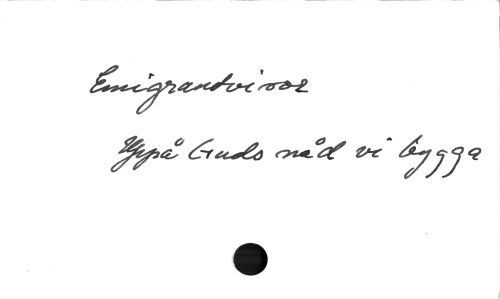 Emigrandvisor
Uppå Guds nåd vi bygga